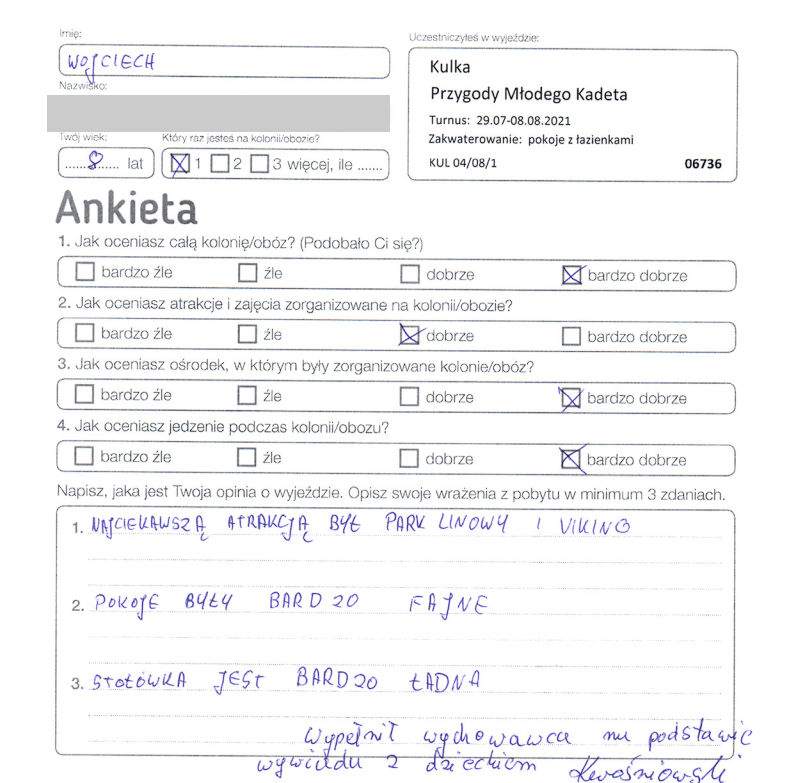 Imię:
WOJCIECH
Uczestniczyłeś w wyjeździe:
Kulka
Przygody Młodego Kadeta
Turnus: 29.07-08.08.2021
Zakwaterowanie: pokoje z łazienkami
KUL 04/08/1 06736
Nazwisko:
Twój wiek: Który raz jesteś na kolonii/obozie?
......8...... lat 1 2 3 więcej, ile .......
Ankieta
1. Jak oceniasz całą kolonię/obóz? (Podobało Ci się?)
bardzo źle źle dobrze bardzo dobrze
2. Jak oceniasz atrakcje i zajęcia zorganizowane na kolonii/obozie?
bardzo źle źle dobrze bardzo dobrze
3. Jak oceniasz ośrodek, w którym były zorganizowane kolonie/obóz?
bardzo źle źle dobrze bardzo dobrze
4. Jak oceniasz jedzenie podczas kolonii/obozu?
bardzo źle źle dobrze bardzo dobrze
Napisz, jaka jest Twoja opinia o wyjeździe. Opisz swoje wrażenia z pobytu w minimum 3 zdaniach.
1. NAJCIEKAWSZĄ ATRAKCJĄ BYŁ PARK LINOWY I VIKING
2. POKOJE BYŁY BARDZO FAJNE
3. STOŁÓWKA JEST BARDZO ŁADNA
Wypełnił wychowawca na podstawie
wywiadu z dzieckiem Kwaśniowski